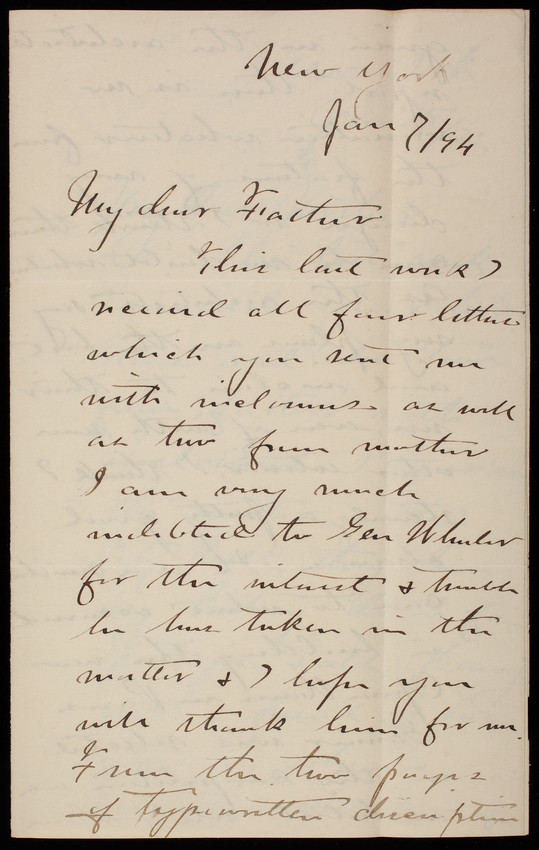 New York
Jan 7/94
My dear Father
This last week I
received all four letters
which you sent me
with inclosures as well
as two from mother
I am very much
indebted to Gen Wheeler
for the interest & trouble
he has taken in the
matter & I hope you
will thank him for me.
From the two pages
of typewritten discription